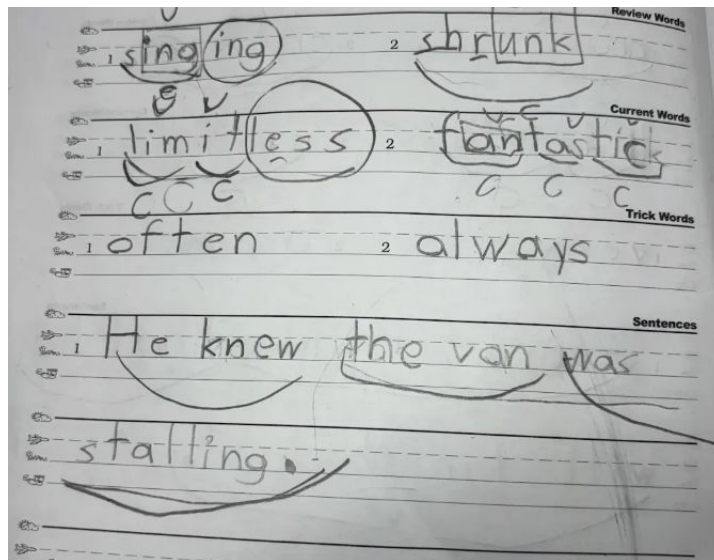 Review Words
1 singing 2 shrunk
Current Words
1 limitless 2
Trick Words
1 often 2 always
Sentences
1 He knew the van was
stalling.